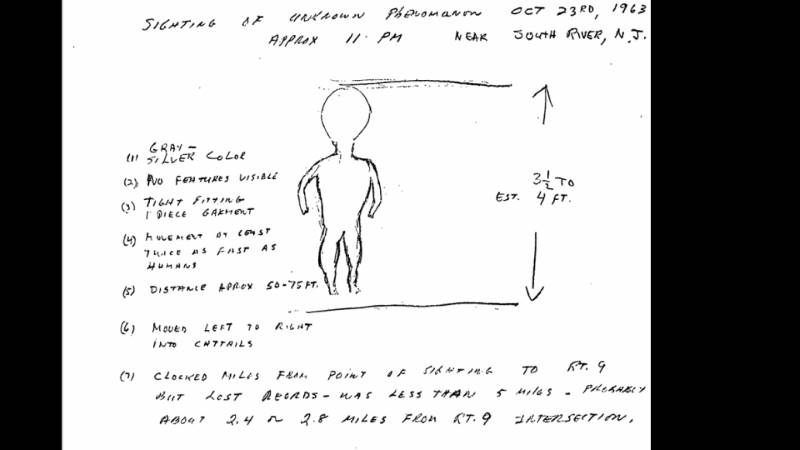 SIGHTING OF UNKNOWN PHENOMANON OCT 23RD, 1963
APPROX 11 PM NEAR SOUTH RIVER, N.J.
(1) GRAY-
SILVER COLOR
(2) NO FEATURES VISIBLE
(3) TIGHT FITTING
1 PIECE GARMENT
(4) MOVEMENT AT LEAST
TWICE AS FAST AS
HUMANS
(5) DISTANCE APROX 50-75 FT.
(6) MOVED LEFT TO RIGHT
INTO CATTAILS
(7) CLOCKED MILES FROM POINT OF SIGHTING TO RT. 9
BUT LOST RECORDS - WAS LESS THAN 5 MILES - PROBABLY
ABOUT 2.4 OR 2.8 MILES FROM RT. 9 INTERSECTION.
EST. 3½ TO
4 FT.